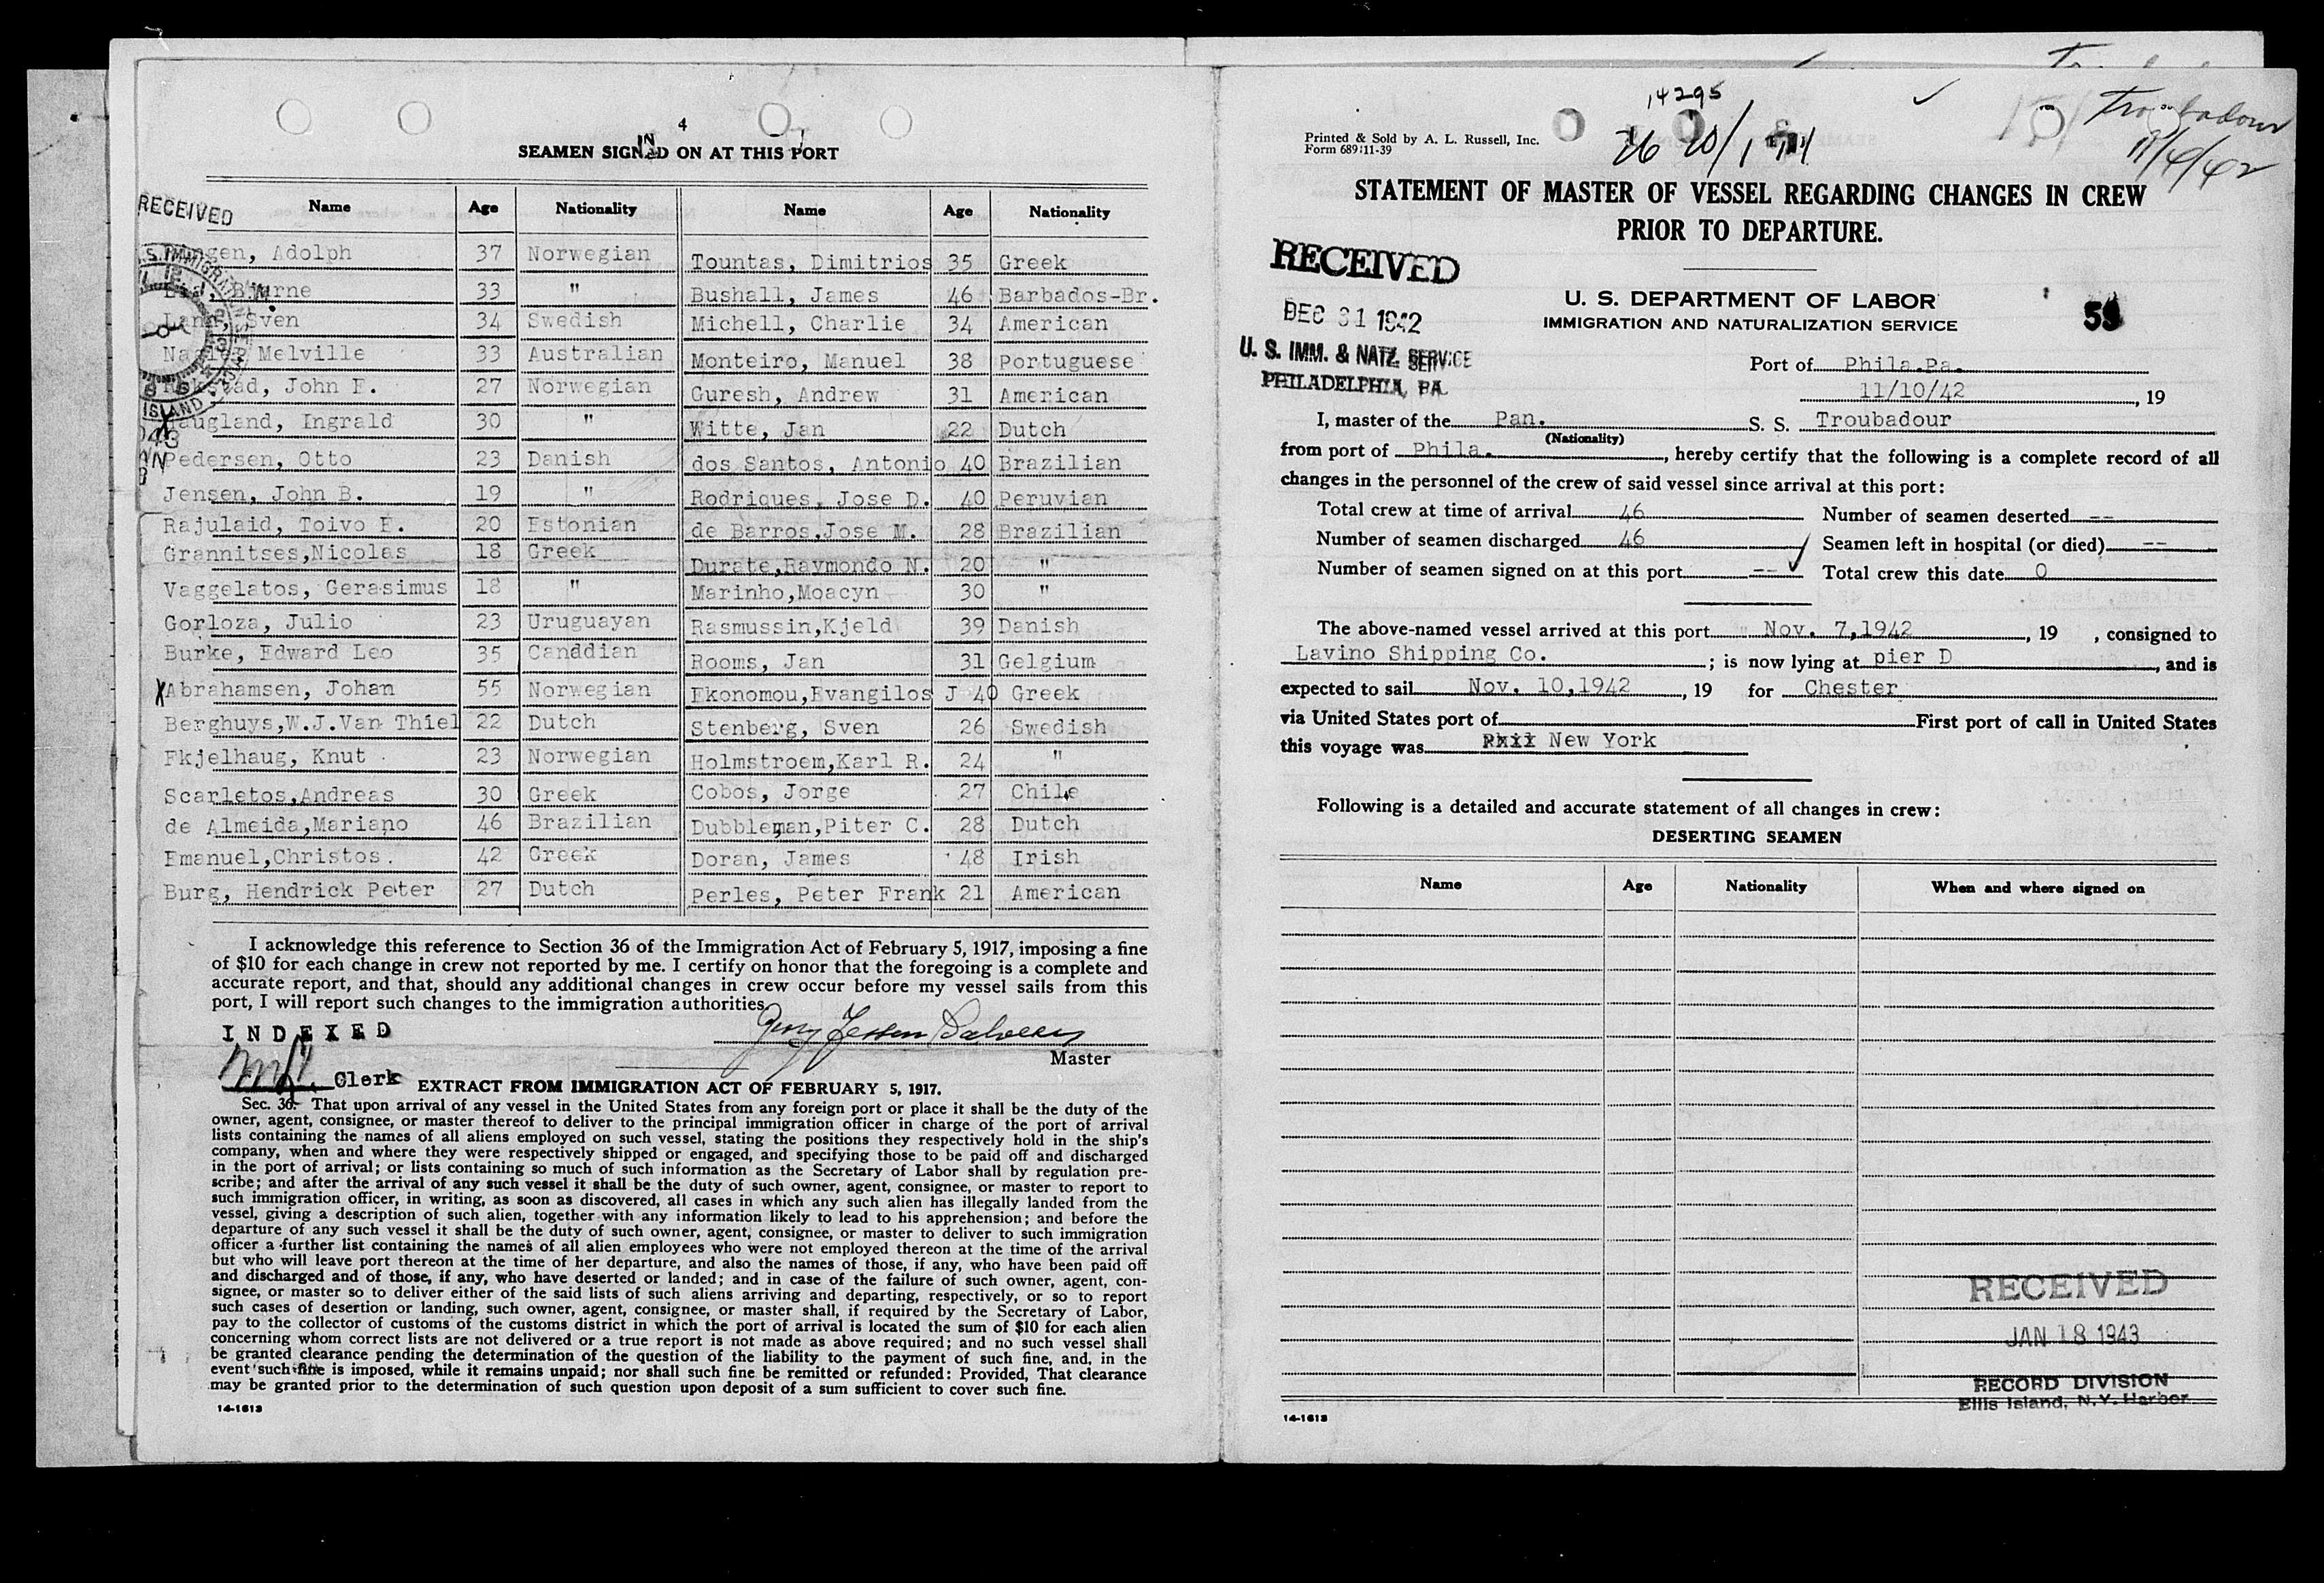 4
IN
SEAMEN SIGNED ON AT THIS PORT
RECEIVED
Name Age Nationality Name Age Nationality
Adolph 37 Norwegian Tountas, Dimitrios 35 Greek
33 " Bushall, James 46 Barbados-Br.
Sven 34 Swedish Michell, Charlie 34 American
Melville 33 Australian Monteiro, Manuel 38 Portuguese
John F. 27 Norwegian Guresh, Andrew 31 American
Haugland, Ingrald 30 " Witte, Jan 22 Dutch
Pedersen, Otto 23 Danish dos Santos, Antonio 40 Brazilian
Jensen, John B. 19 " Rodriques, Jose D. 40 Peruvian
Rajulaid, Toivo E. 20 Estonian de Barros,Jose M. 28 Brazilian
Grannitses,Nicolas 18 Greek Durate,Raymondo N. 20 "
Vaggelatos, Gerasimus 18 " Marinho,Moacyn 30 "
Gorloza, Julio 23 Uruguayan Rasmussin,Kjeld 39 Danish
Burke, Edward Leo 35 Canddian Rooms, Jan 31 Gelgium
X Abrahamsen, Johan 55 Norwegian Ekonomou,Evangilos J 40 Greek
Berghuys,W.J.Van Thiel 22 Dutch Stenberg, Sven 26 Swedish
Fkjelhaug, Knut 23 Norwegian Holmstroem,Karl R. 24 "
Scarletos,Andreas 30 Greek Cobos, Jorge 27 Chile
de Almeida,Mariano 46 Brazilian Dubbleman,Piter C. 28 Dutch
Emanuel,Christos. 42 Greek Doran, James 48 Irish
Burg, Hendrick Peter 27 Dutch Perles, Peter Frank 21 American
I acknowledge this reference to Section 36 of the Immigration Act of February 5, 1917, imposing a fine
of $10 for each change in crew not reported by me. I certify on honor that the foregoing is a complete and
accurate report, and that, should any additional changes in crew occur before my vessel sails from this
port, I will report such changes to the immigration authorities.
INDEXED
Master
Clerk
EXTRACT FROM IMMIGRATION ACT OF FEBRUARY 5, 1917.
Sec. 36. That upon arrival of any vessel in the United States from any foreign port or place it shall be the duty of the
owner, agent, consignee, or master thereof to deliver to the principal immigration officer in charge of the port of arrival
lists containing the names of all aliens employed on such vessel, stating the positions they respectively hold in the ship's
company, when and where they were respectively shipped or engaged, and specifying those to be paid off and discharged
in the port of arrival; or lists containing so much of such information as the Secretary of Labor shall by regulation pre-
scribe; and after the arrival of any such vessel it shall be the duty of such owner, agent, consignee, or master to report to
such immigration officer, in writing, as soon as discovered, all cases in which any such alien has illegally landed from the
vessel, giving a description of such alien, together with any information likely to lead to his apprehension; and before the
departure of any such vessel it shall be the duty of such owner, agent, consignee, or master to deliver to such immigration
officer a further list containing the names of all alien employees who were not employed thereon at the time of the arrival
but who will leave port thereon at the time of her departure, and also the names of those, if any, who have been paid off
and discharged and of those, if any, who have deserted or landed; and in case of the failure of such owner, agent, con-
signee, or master so to deliver either of the said lists of such aliens arriving and departing, respectively, or so to report
such cases of desertion or landing, such owner, agent, consignee, or master shall, if required by the Secretary of Labor,
pay to the collector of customs of the customs district in which the port of arrival is located the sum of $10 for each alien
concerning whom correct lists are not delivered or a true report is not made as above required; and no such vessel shall
be granted clearance pending the determination of the question of the liability to the payment of such fine, and, in the
event such fine is imposed, while it remains unpaid; nor shall such fine be remitted or refunded: Provided, That clearance
may be granted prior to the determination of such question upon deposit of a sum sufficient to cover such fine.
14-1613
14295
Troubadour
11/4/42
Printed & Sold by A. L. Russell, Inc.
Form 689:11-39
STATEMENT OF MASTER OF VESSEL REGARDING CHANGES IN CREW
PRIOR TO DEPARTURE.
RECEIVED
DEC 31 1942
U. S. IMM. & NATZ. SERVICE
PHILADELPHIA, PA.
U. S. DEPARTMENT OF LABOR
IMMIGRATION AND NATURALIZATION SERVICE
Port of Phila.Pa.
11/10/42, 19
I, master of the Pan. S. S. Troubadour
(Nationality)
from port of Phila., hereby certify that the following is a complete record of all
changes in the personnel of the crew of said vessel since arrival at this port:
Total crew at time of arrival 46 Number of seamen deserted --
Number of seamen discharged 46 Seamen left in hospital (or died) --
Number of seamen signed on at this port -- Total crew this date 0
The above-named vessel arrived at this port Nov. 7,1942, 19 , consigned to
Lavino Shipping Co. ; is now lying at pier D, and is
expected to sail Nov. 10,1942, 19 for Chester
via United States port of First port of call in United States
this voyage was New York
Following is a detailed and accurate statement of all changes in crew:
DESERTING SEAMEN
Name Age Nationality When and where signed on
RECEIVED
JAN 18 1943
RECORD DIVISION
Ellis Island, N.Y. Harbor
14-1613